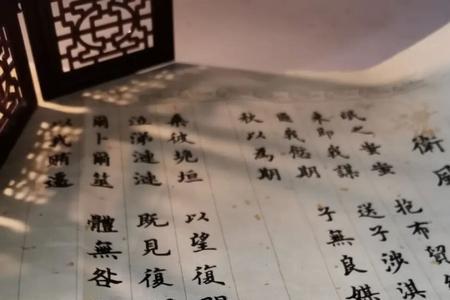 衛風
氓之蚩蚩 抱布貿
來即我謀 送子涉淇
匪我愆期 子無良媒
秋以為期
乘彼垝垣 以望復
泣涕漣漣 既見復
爾卜爾筮 體無咎
以我賄遷